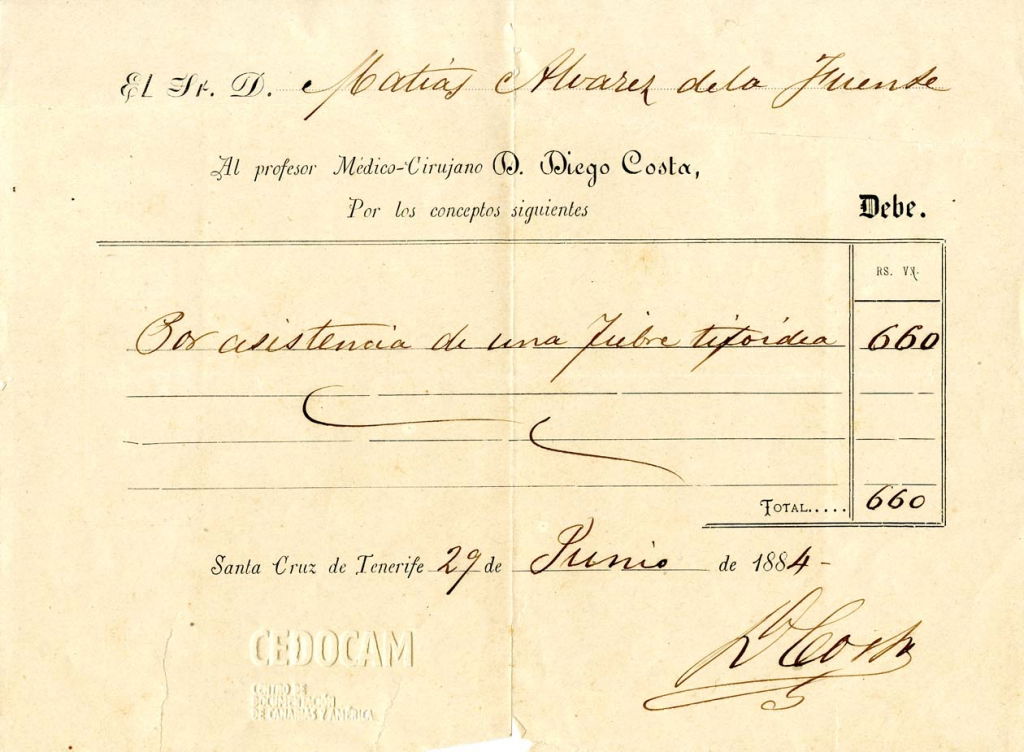 El Sr. D. Matias Alvarez de la Fuente
Al profesor Médico-Cirujano D. Diego Costa,
Por los conceptos siguientes Debe.
RS. VN.
Por asistencia de una fiebre tifoidea 660
TOTAL..... 660
Santa Cruz de Tenerife 29 de Junio de 1884-
D Costa
CEDOCAM
CENTRO DE
DOCUMENTACIÓN
DE CANARIAS Y AMÉRICA